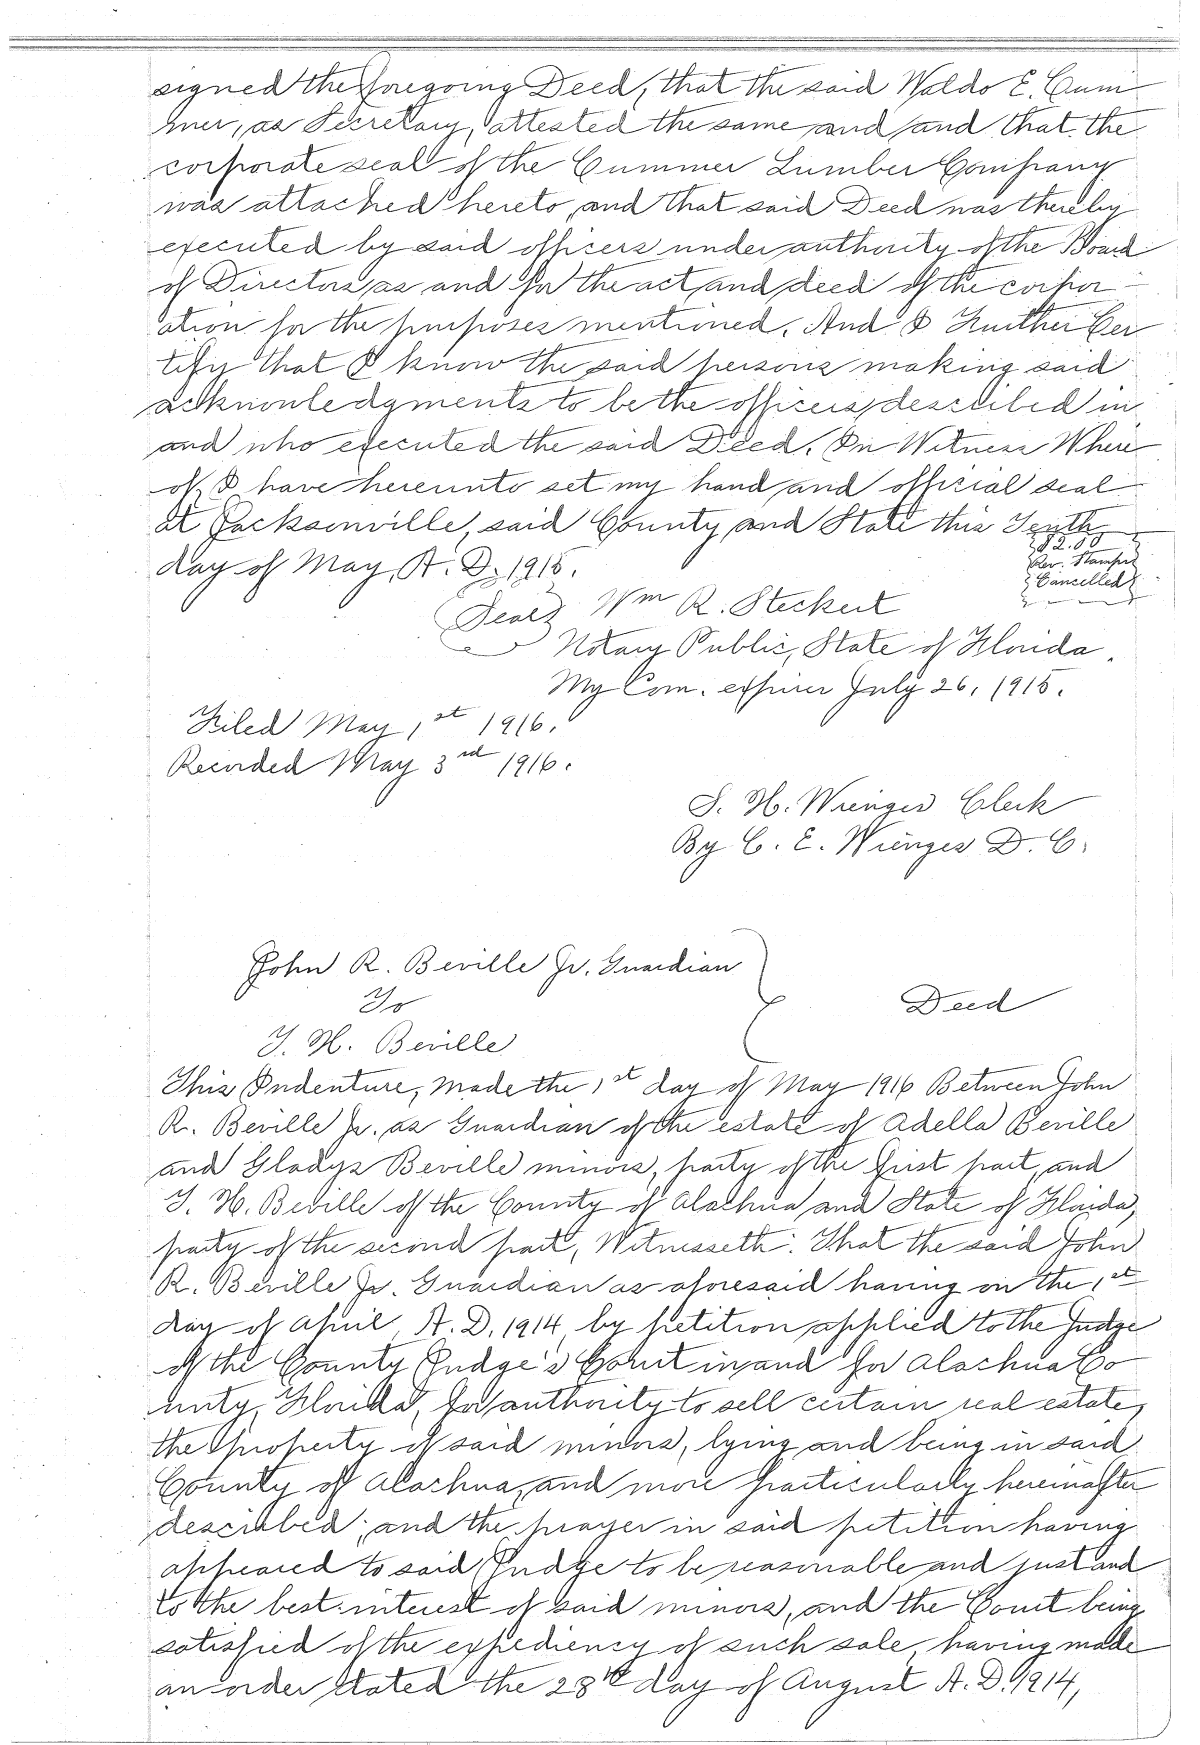 signed the foregoing Deed, that the said Waldo E. Cum
mer, as Secretary, attested the same and and that the
corporate seal of the Cummer Lumber Company
was attached hereto, and that said Deed was thereby
executed by said officers under authority of the Board
of Directors, as and for the act and deed of the corpor-
ation for the purposes mentioned. And I Further Cer
tify that I know the said persons making said
acknowledgments to be the officers, described in
and who executed the said Deed. In Witness Where
of, I have hereunto set my hand and official seal
at Jacksonville, said County and State this Tenth
day of May, A. D. 1915.
$2.00
Rev. Stamps
Cancelled
Seal Wm R. Steckert
Notary Public, State of Florida.
My Com. expires July 26, 1915.
Filed May 1st 1916.
Recorded May 3rd 1916.
S. H. Wienges Clerk
By C. E. Wienges D. C.
John R. Beville Jr. Guardian
To
Deed
T. H. Beville
This Indenture, Made the 1st day of May 1916 Between John
R. Beville Jr. as Guardian of the estate of Adella Beville
and Gladys Beville minors, party of the first part, and
T. H. Beville of the County of Alachua and State of Florida,
party of the second part, Witnesseth: That the said John
R. Beville Jr. Guardian as aforesaid having on the 1st
day of April, A. D. 1914, by petition applied to the Judge
of the County Judge's Court in and for Alachua Co
unty, Florida, for authority to sell certain real estate,
the property of said minors, lying and being in said
County of Alachua, and more particularly hereinafter
described; and the prayer in said petition having
appeared to said Judge to be reasonable and just and
to the best interest of said minors, and the Court being
satisfied of the expediency of such sale, having made
an order dated the 28th day of August A. D. 1914,